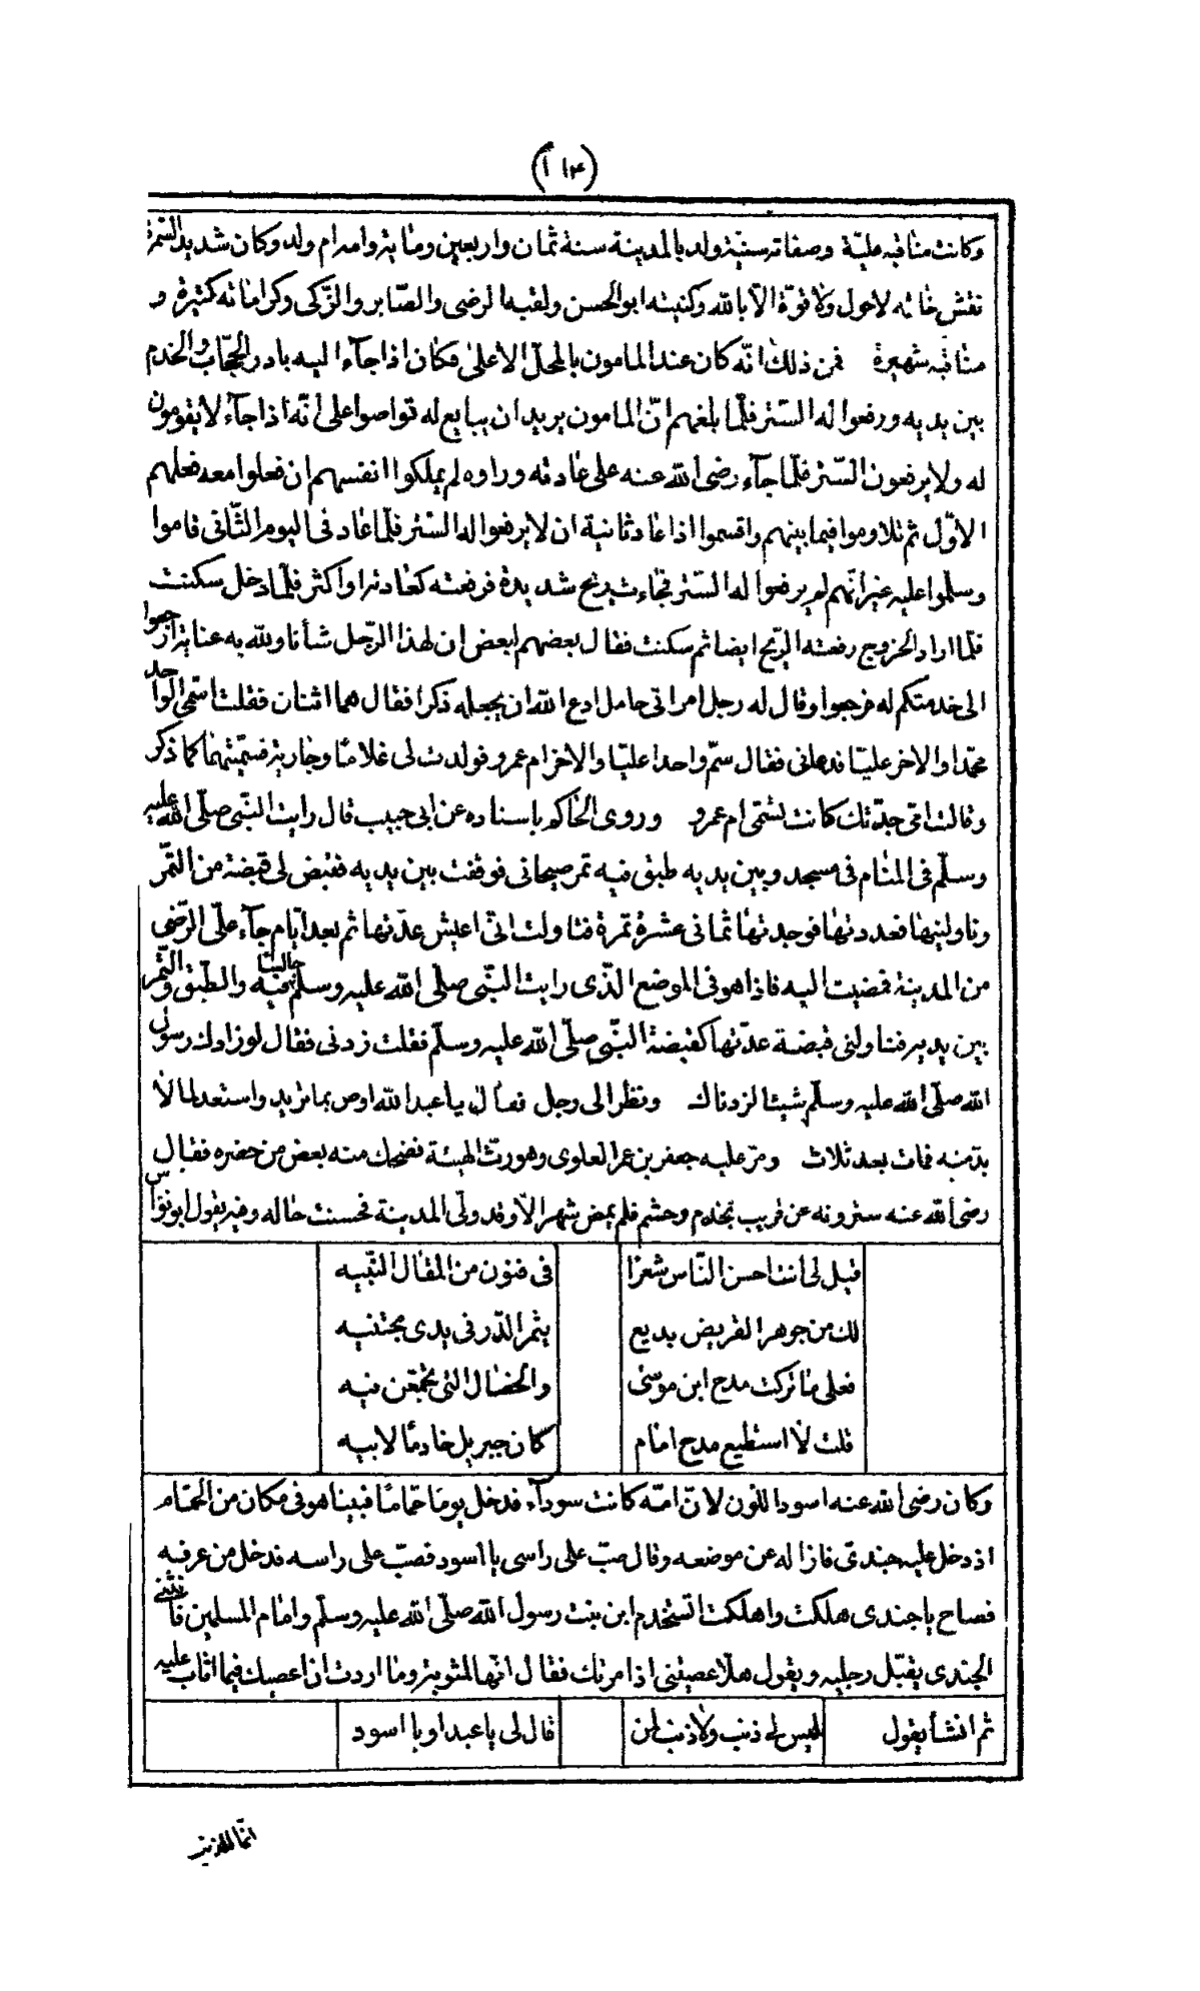 (١١٣)
وكانت مناقبه عليّة وصفاته سنيّة ولد بالمدينة سنة ثمان واربعين ومائة وامه ام ولد وكان شديد السمرة
نقش خاتمه لاحول ولا قوّة الّا بالله وكنيته ابو الحسن ولقبه الرضى والصّابر والزّكى وكراماته كثيرة و
مناقبه شهيرة فمن ذلك انّه كان عند المامون بالمحلّ الاعلى فكان اذا جآء اليه بادر الحجّاب والخدم
بين يديه ورفعوا له السّتر فلمّا بلغهم انّ المامون يريد ان يبايع له تواصوا على انّه اذا جآء لا يقومون
له ولا يرفعون السّتر فلمّا جآء رضى الله عنه على عادته وراوه لم يملكوا انفسهم ان فعلوا معه فعلهم
الاوّل ثم تلاوموا فيما بينهم واقسموا اذا عاد ثانية ان لا يرفعوا له السّتر فلمّا عاد فى اليوم الثّانى قاموا
وسلّموا عليه غير انّهم لم يرفعوا له السّتر فجاءت ريح شديدة فرفعته كعادته او اكثر فلمّا دخل سكنت
فلمّا اراد الخروج رفعته الرّيح ايضا ثم سكنت فقال بعضهم لبعض ان لهذا الرّجل شأنا ولله به عناية ارجعوا
الى خدمتكم له فرجعوا وقال له رجل امراتى حامل ادع الله ان يجعله ذكرا فقال هما اثنان فقلت اسمّى الواحد
محمّدا والاخر عليّا فدعانى فقال سمّ واحدا عليّا والاخر ام عمرو فولدت لى غلامًا وجارية فسمّيتهما كما ذكر
وقالت امّى جدّتك كانت تسمّى ام عمرو وروى الحاكم باسناده عن ابى حبيب قال رايت النّبى صلّى الله عليه
وسلّم فى المنام فى مسجد وبين يديه طبق فيه تمر صيحانى فوقفت بين يديه فقبض لى قبضة من التّمر
وناولنيها فعددتها فوجدتها ثمانى عشرة تمرة فتاولت انّى اعيش عدّتها ثم بعد ايّام جآء علّى الرّضى
من المدينة فمضيت اليه فاذا هو فى الموضع الّذى رايت النّبى صلّى الله عليه وسلّم جالسًا فيه والطّبق والتّمر
بين يديه فناولنى قبضة عدّتها كقبضة النّبى صلّى الله عليه وسلّم فقلت زدنى فقال لو زادك رسول
الله صلّى الله عليه وسلّم شيئا لزدناك ونظر الى رجل فقال يا عبد الله اوص بما تريد واستعد لما لا
بد منه فمات بعد ثلاث ومرّ عليه جعفر بن عمر العلوى وهو رثّ الهيئة فضحك منه بعض من حضره فقال
رضى الله عنه سترونه عن قريب بخدم وحشم فلم يمض شهر الّا وقد ولّى المدينة فحسنت حاله وفيه يقول ابو نواس
قيل لى انت احسن النّاس شعرًا فى فنون من المقال النّبيه
لك من جوهر القريض بديع يثمر الدّر فى يدى مجتنيه
فعلى ما تركت مدح ابن موسى والخصال التى تجمّعن فيه
قلت لا استطيع مدح امام كان جبريل خادمًا لابيه
وكان رضى الله عنه اسود اللّون لانّ امّه كانت سودآء فدخل يومًا حمّامًا فبينا هو فى مكان من الحمّام
اذ دخل عليه جندىّ فازاله عن موضعه وقال صبّ على راسى يا اسود فصبّ على راسه فدخل من عرفه
فصاح يا جندى هلكت واهلكت اتستخدم ابن بنت رسول الله صلّى الله عليه وسلّم وامام المسلمين فانثنى
الجندى يقبّل رجليه ويقول هلّا عصيتنى اذ امرتك فقال انّها لمثوبة وما اردت ان اعصيك فيما اثاب عليه
ثم انشأ يقول ليس لى ذنب ولا ذنب لمن قال لى يا عبد او يا اسود
انّما الذنب